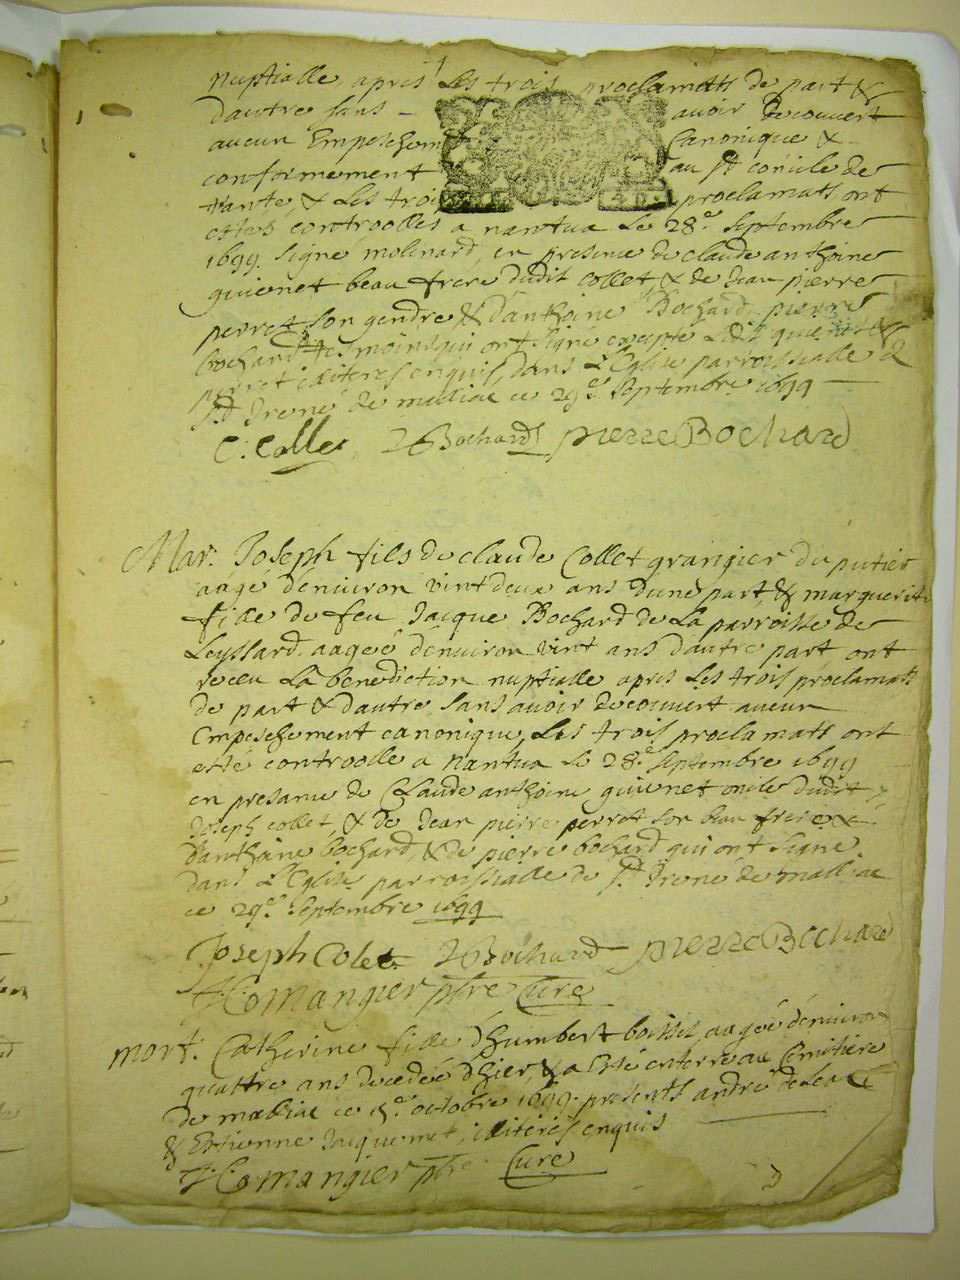 nuptialle apris les trois proclamats de part &
dautre sans avoir decouvert
aucun Empeschem canonique &
conformement au st concile de
trante, & Les trois proclamats ont
estes controolles a nantua Le 28e septembre
1699. signé molinard, en presence de claude anthoine
guienet beau frere dudit collet, & de Jean pierre
perret son gendre & d'anthoine Bochard pierre
bochard tesmoins qui ont signé excepte Ledit guienet &
perret illiteres enquis, dans L'Eglise parroissialle de
st Irené de ce 29e septembre 1699
C: Collet, Bochard pierre Bochard
Mar. Joseph fils de claude Collet grangier du putier
aagé denuiron vint deux ans dune part & marguerite
fille de feu Jacque Bochard de La parroisse de
Leyssard aagée denuiron vint ans d'autre part ont
receu La benediction nuptialle apres Les trois proclamats
de part & dautre sans avoir decouvert aucun
Empeschement canonique, Les trois proclamats ont
esté controolle a nantua Le 28e septembre 1699
en presance de Claude anthoine guienet oncle dudit
Joseph collet, & de Jean pierre perret son beau frere &
d'anthoine bochard, & de pierre bochard qui ont signé
dans L'Eglise parroissialle de st Irené de
ce 29e septembre 1699
Joseph Colet Bochard pierre Bochard
Comangier ptre Cure
mort. Catherine fille d'humbert aagée denuiron
quattre ans decedée d'hier, & a Esté enterre au Cemitiere
de ce octobre 1699. presents andré
& Estienne Jacquemet, illiteres enquis
Comangier ptre Cure